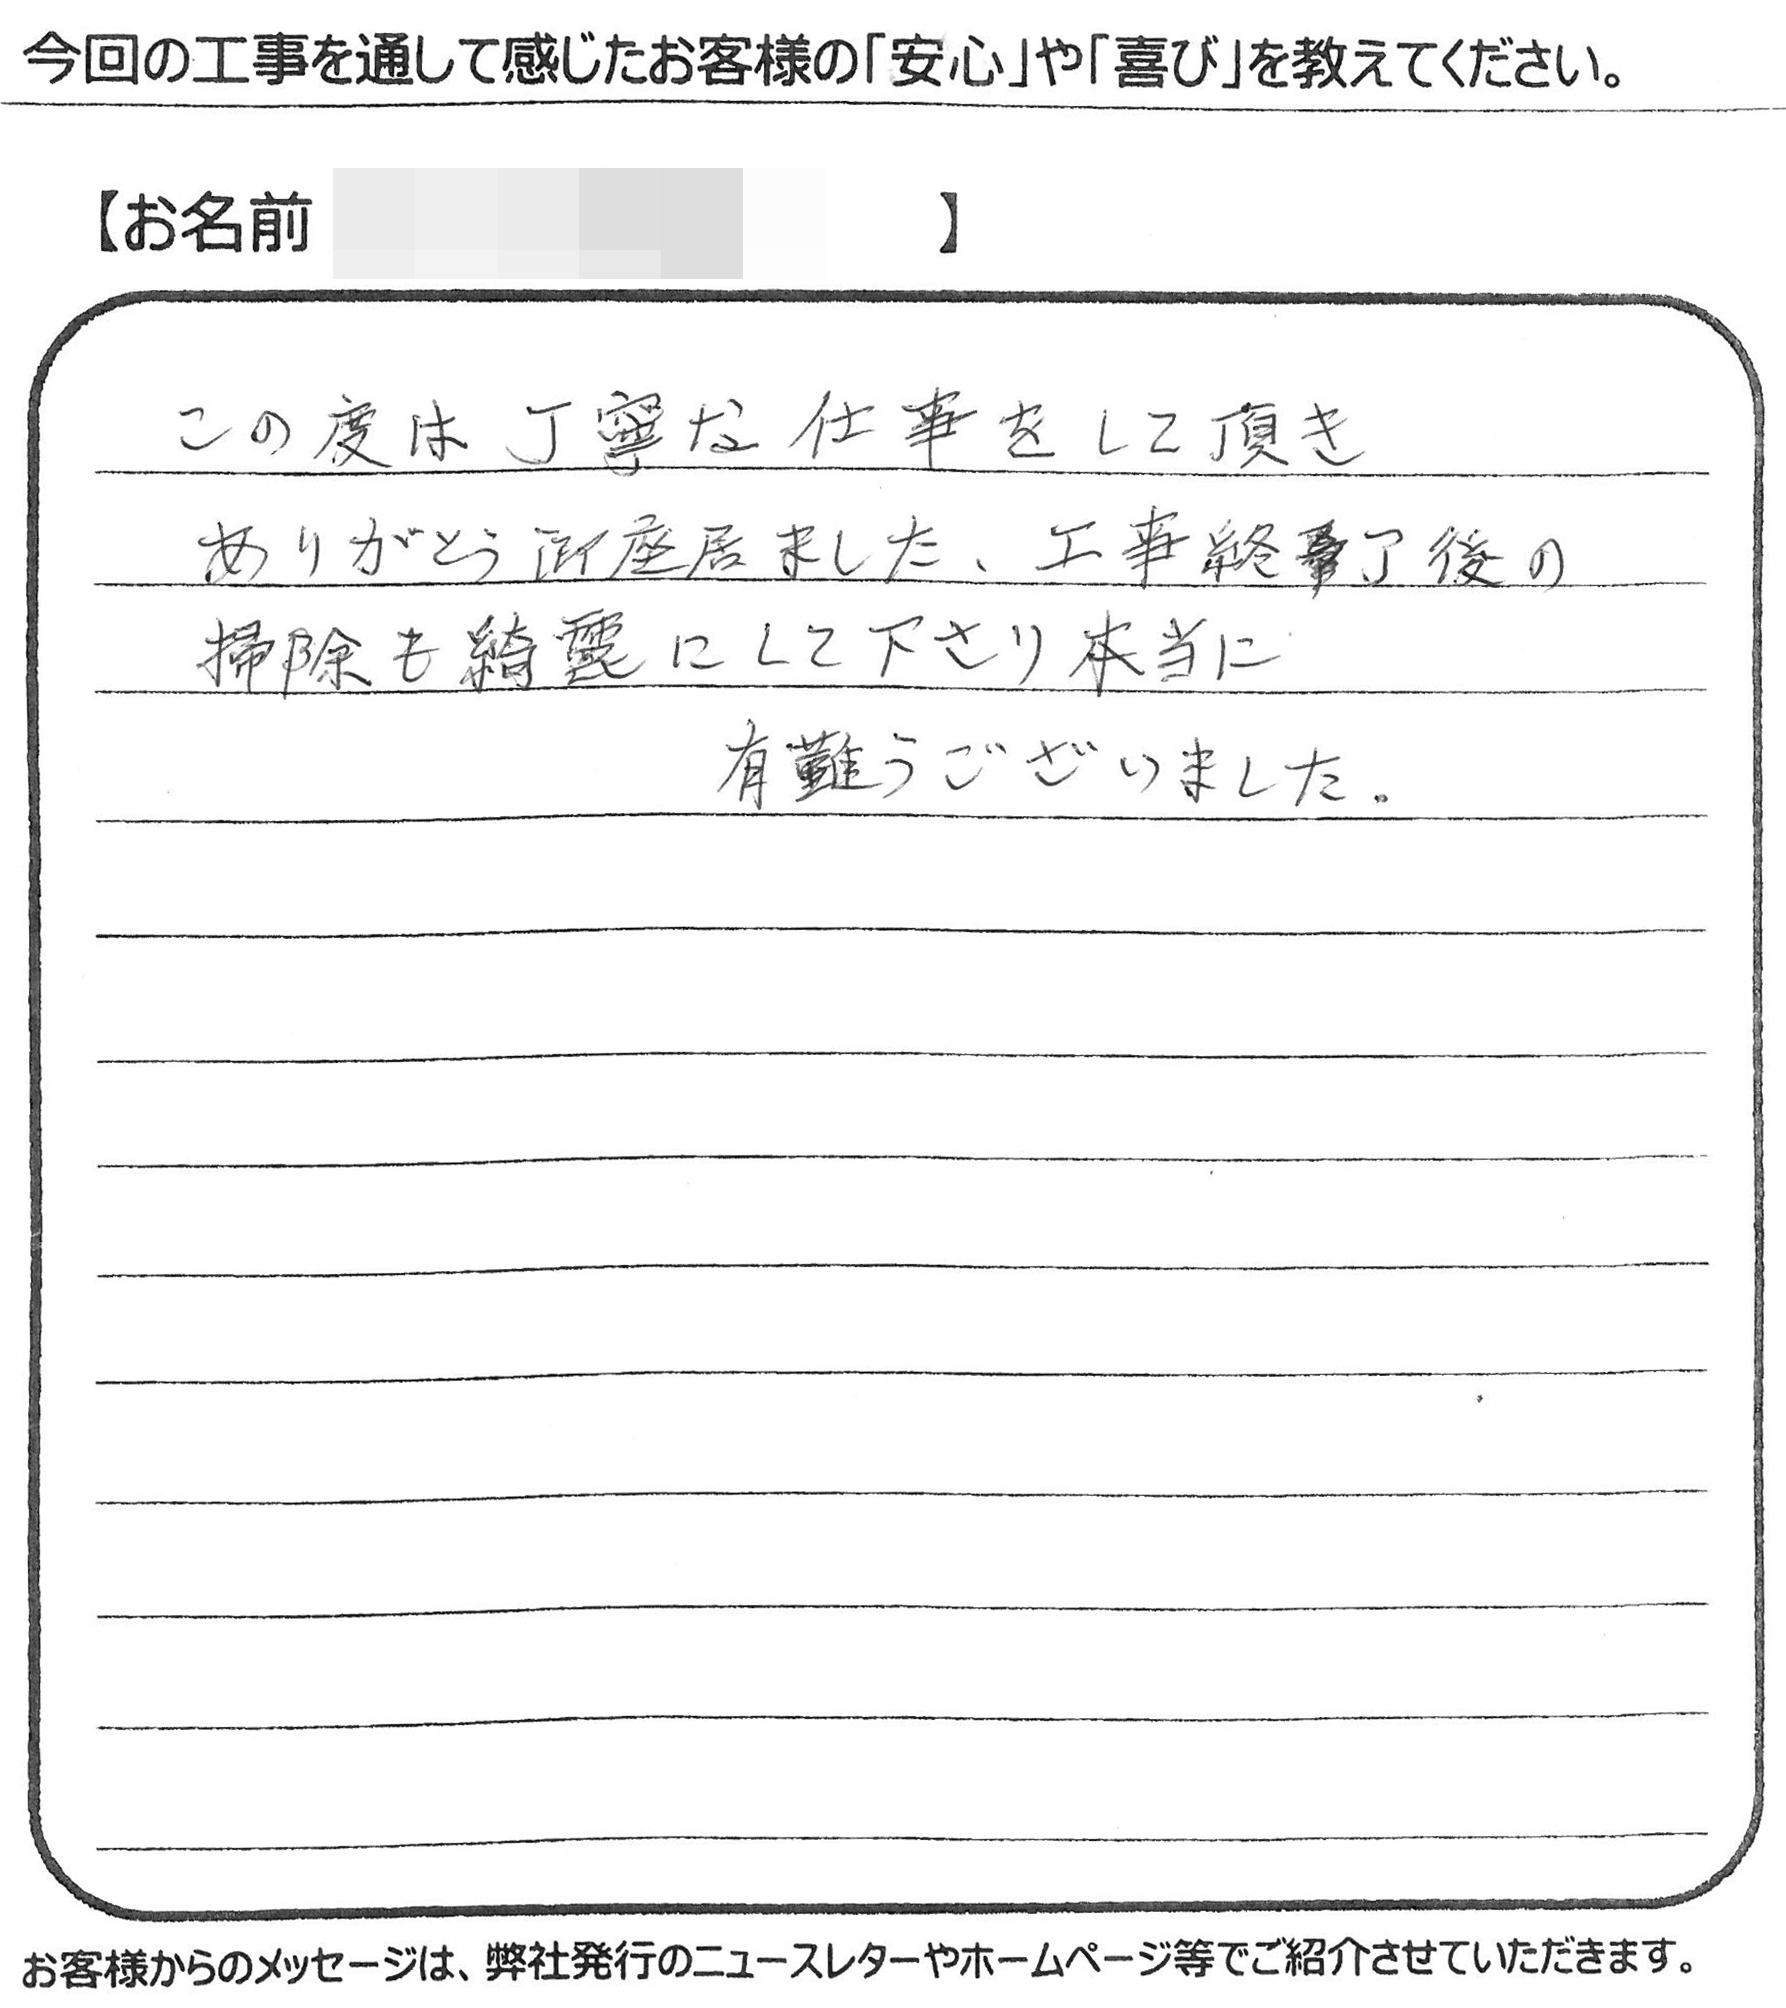 今回の工事を通して感じたお客様の「安心」や「喜び」を教えてください。
【お名前 】
この度は丁寧な仕事をして頂き
ありがとう御座居ました、工事終了後の
掃除も綺麗にして下さり本当に
有難うございました.
お客様からのメッセージは、弊社発行のニュースレターやホームページ等でご紹介させていただきます。